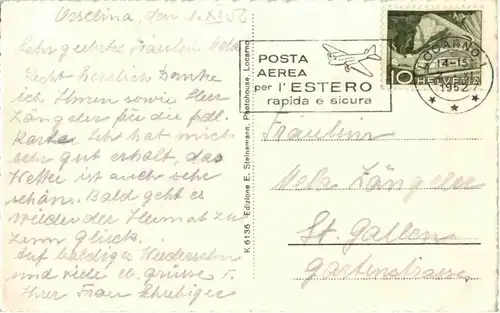 Orselina, den 1. XI. 52
Sehr geehrtes Fräulein
Recht herzlich Danke
ich Ihnen sowie Herr
Zängeler für die frdl.
Karte. Ich hat mich
sehr gut erholt, das
Wetter ist auch sehr
schön. Bald geht es
wieder der Heimat zu
zum Glück.
Auf baldiges Wiedersehn
und viele
Ihrer Frau
K 6136 Edizione E. Steinemann, Photohouse, Locarno
POSTA
AEREA
per l'ESTERO
rapida e sicura
LOCARNO 1
14-15
1952
10 HELVETIA
Fräulein
Zängeler
St. Gallen
Gartenstrasse